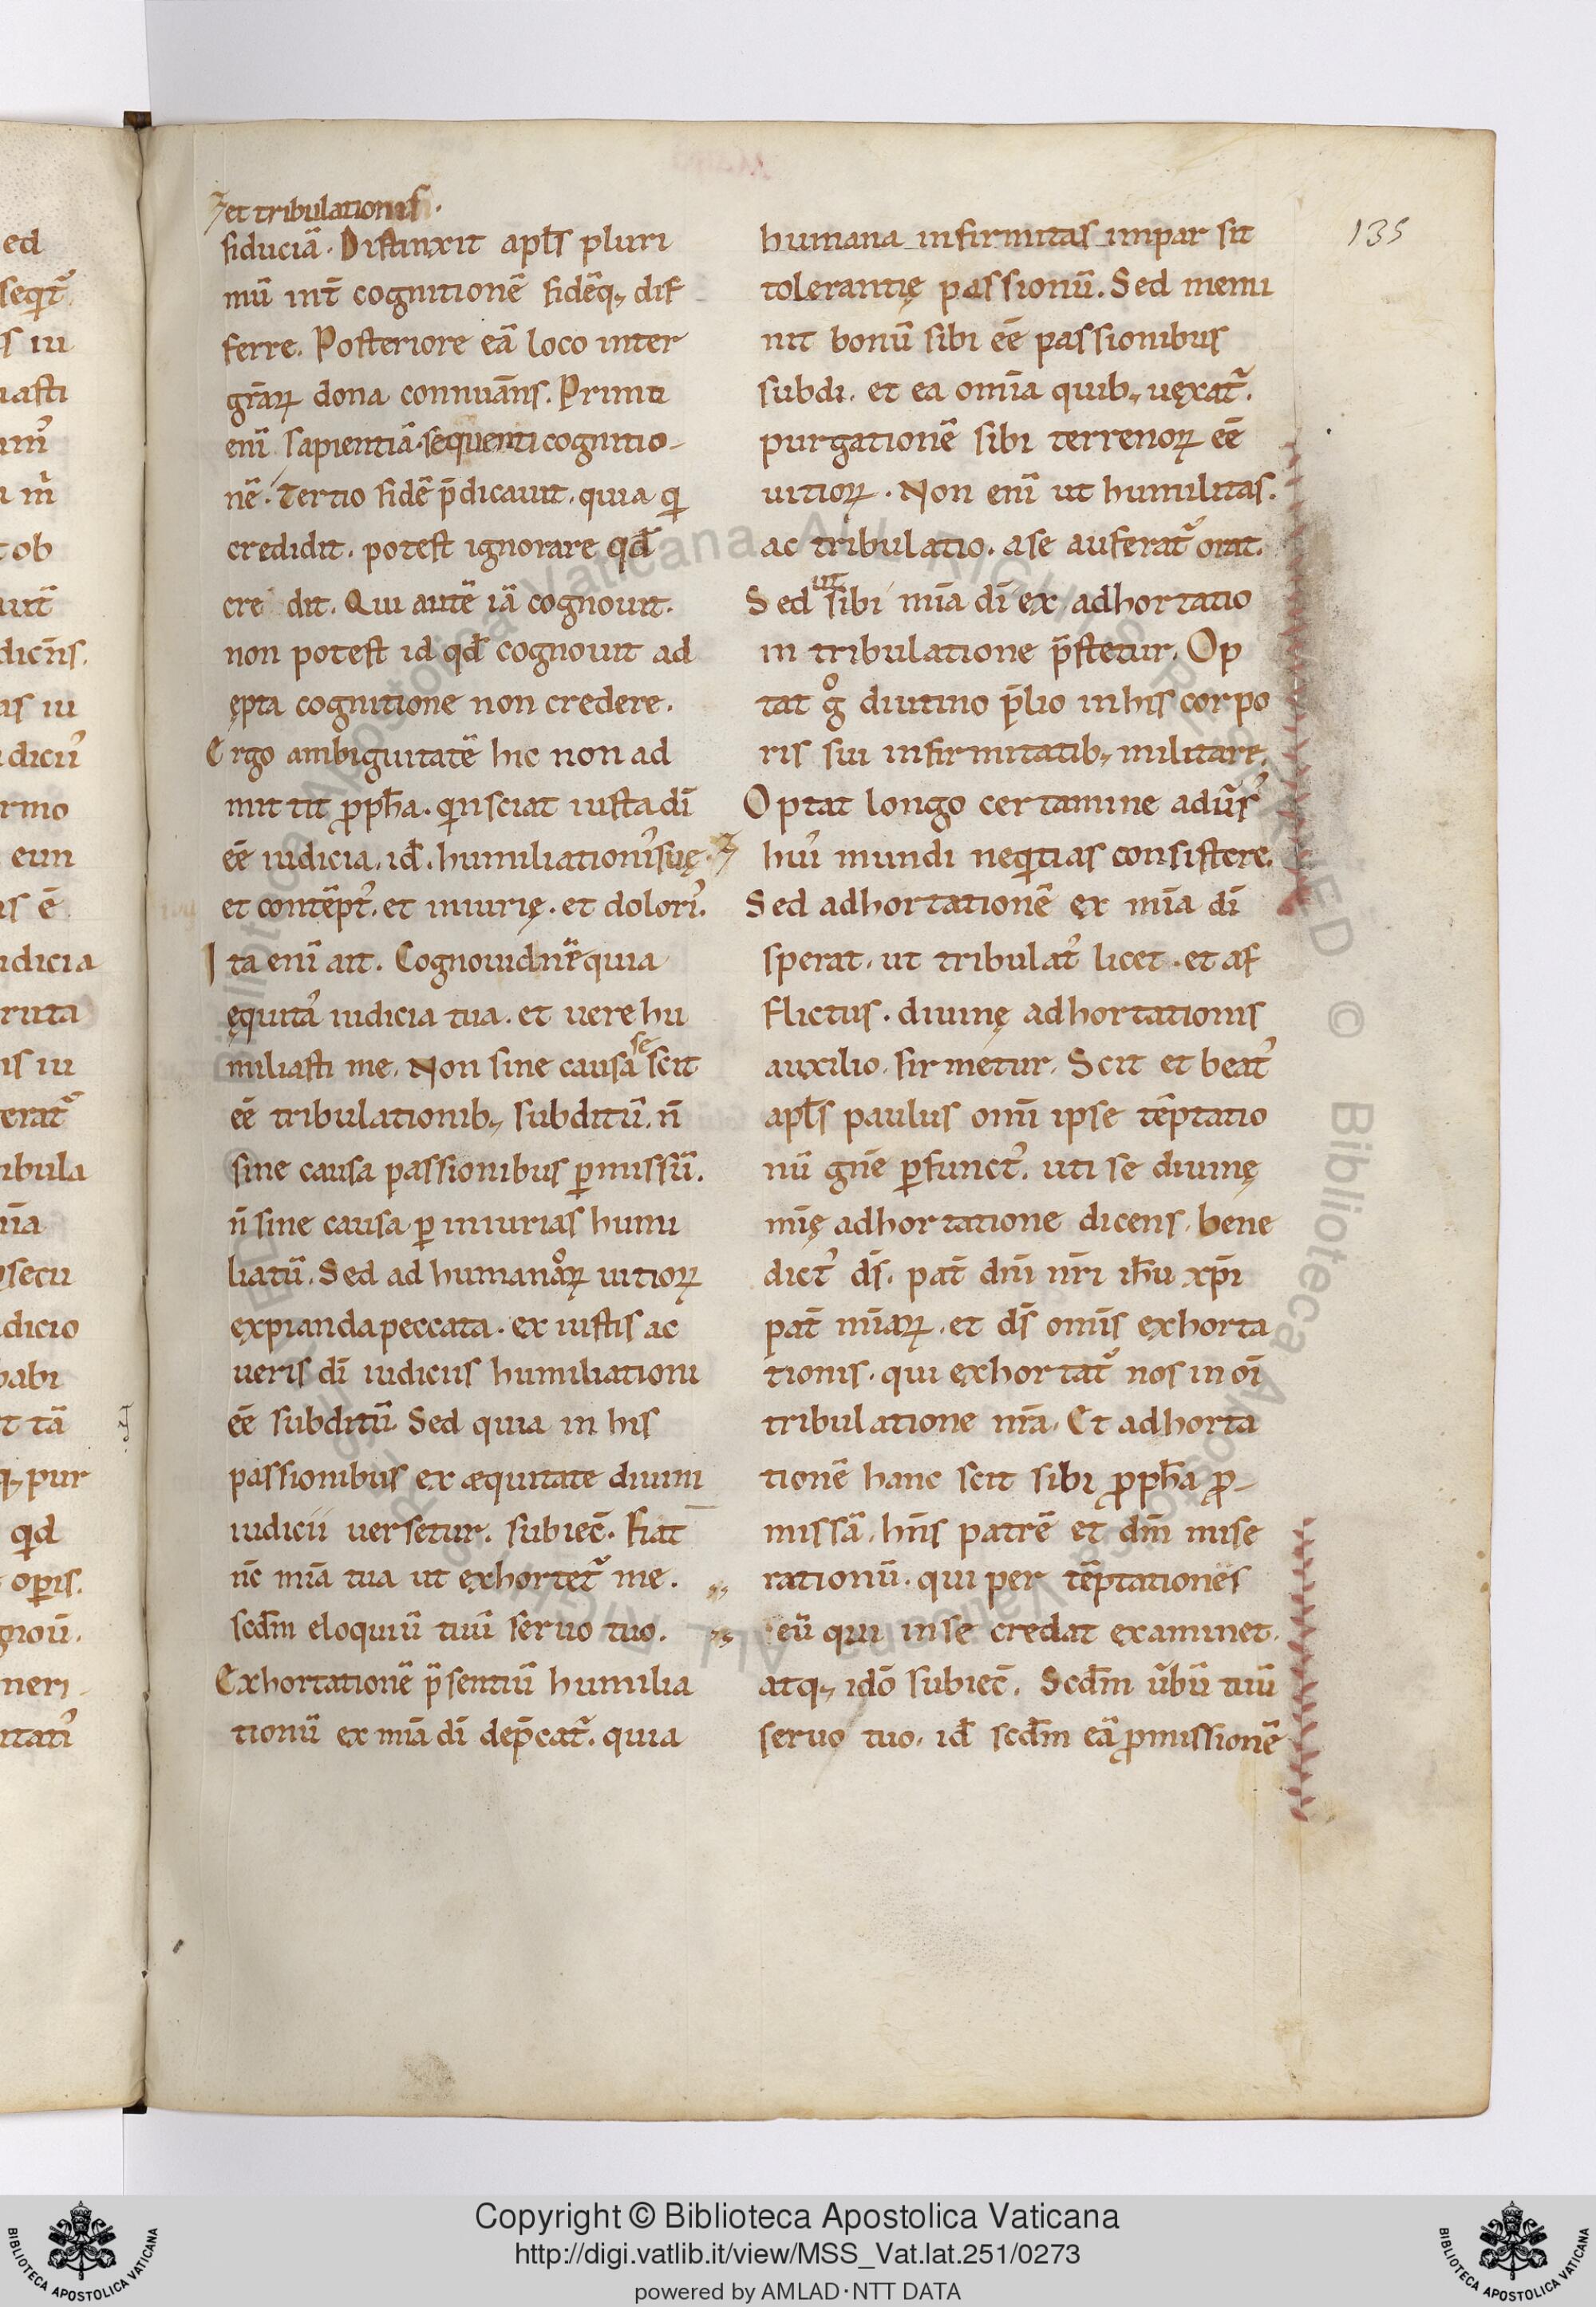 et tribulationis.
fiduciā. Distinxit apl̄s pluri
mū int̄ cognitionē fidēq; dif
ferre. Posteriore eā loco inter
gr̄aꝝ dona connuāns. Primū
enī sapientiā. sequenti cognitio-
nē. Tertio fidē p̄dicauit. quia qi
credidit. potest ignorare qd̄
cre dit. Qui autē iā cognouit.
non potest id qd̄ cognouit ad
ępta cognitione non credere.
Ergo ambiguitatē hic non ad
mittit ꝓph̄a. qui sciat iusta dī
eē iudicia. id̄. humiliationꝰ suę.
et contēptꝰ. et iniurię. et dolorꝰ.
Ita enī ait. Cognoui dn̄e quia
ęquitꝰ iudicia tua. et uere hu
miliasti me. Non sine causa se scit
eē tribulationib; subditū. n̄
sine causa passionibus ꝑmissū.
n̄ sine causa ꝑ iniurias humi
liatū. Sed ad humanoꝝ uitioꝝ
expianda peccata. ex iustis ac
ueris dī iudiciis humiliationi
eē subditū. Sed quia in his
passionibus ex æquitate diuini
iudicii uersetur. subiec̄. Fiat
nc̄ mīa tua ut exhortet᷑ me.
scd̄m eloquiū tuū seruo tuo.
Exhortationē p̄sentiū humilia
tionū ex mīa dī dep̄cat᷑. quia
humana infirmitas impar sit
tolerantię passionū. Sed memi
nit bonū sibi eē passionibus
subdi. et ea omīa quib; uexat᷑.
purgationē sibi terrenoꝝ eē
uitioꝝ. Non enī ut humilitas.
ac tribulatio. a se auferat᷑ orat.
Sed ut sibi mīa dī ex adhortatio
in tribulatione p̄stetur. Op
tat gͦ diutino p̄lio in his corpo
ris sui infirmitatib; militare.
Optat longo certamine adūsꝰ
huiꝰ mundi neqitias consistere.
Sed adhortationē ex mīa dī
sperat. ut tribulatꝰ licet. et af
flictus. diuinę adhortationis
auxilio. firmetur. Scit et beatꝰ
apl̄s paulus omī ipse tēptatio
nū gn̄e ꝑfunctꝰ. uti se diuinę
mīę adhortatione dicens. bene
dictꝰ ds̄. pat̄ dn̄i nr̄i ih̄u xp̄i
pat̄ mīaꝝ. et ds̄ omīs exhorta
tionis. qui exhortat᷑ nos in oī
tribulatione nr̄a. Et adhorta
tionē hanc scit sibi ꝓph̄a ꝓ-
missā. hn̄s patrē et dn̄m mise
rationū. qui per tēptationes
eū qui in se credat examinet.
atq; idō subiec̄. Scd̄m ūbū tuū
seruo tuo. id̄ scd̄m eā ꝓmissionē
135
Copyright © Biblioteca Apostolica Vaticana
http://digi.vatlib.it/view/MSS_Vat.lat.251/0273
powered by AMLAD·NTT DATA